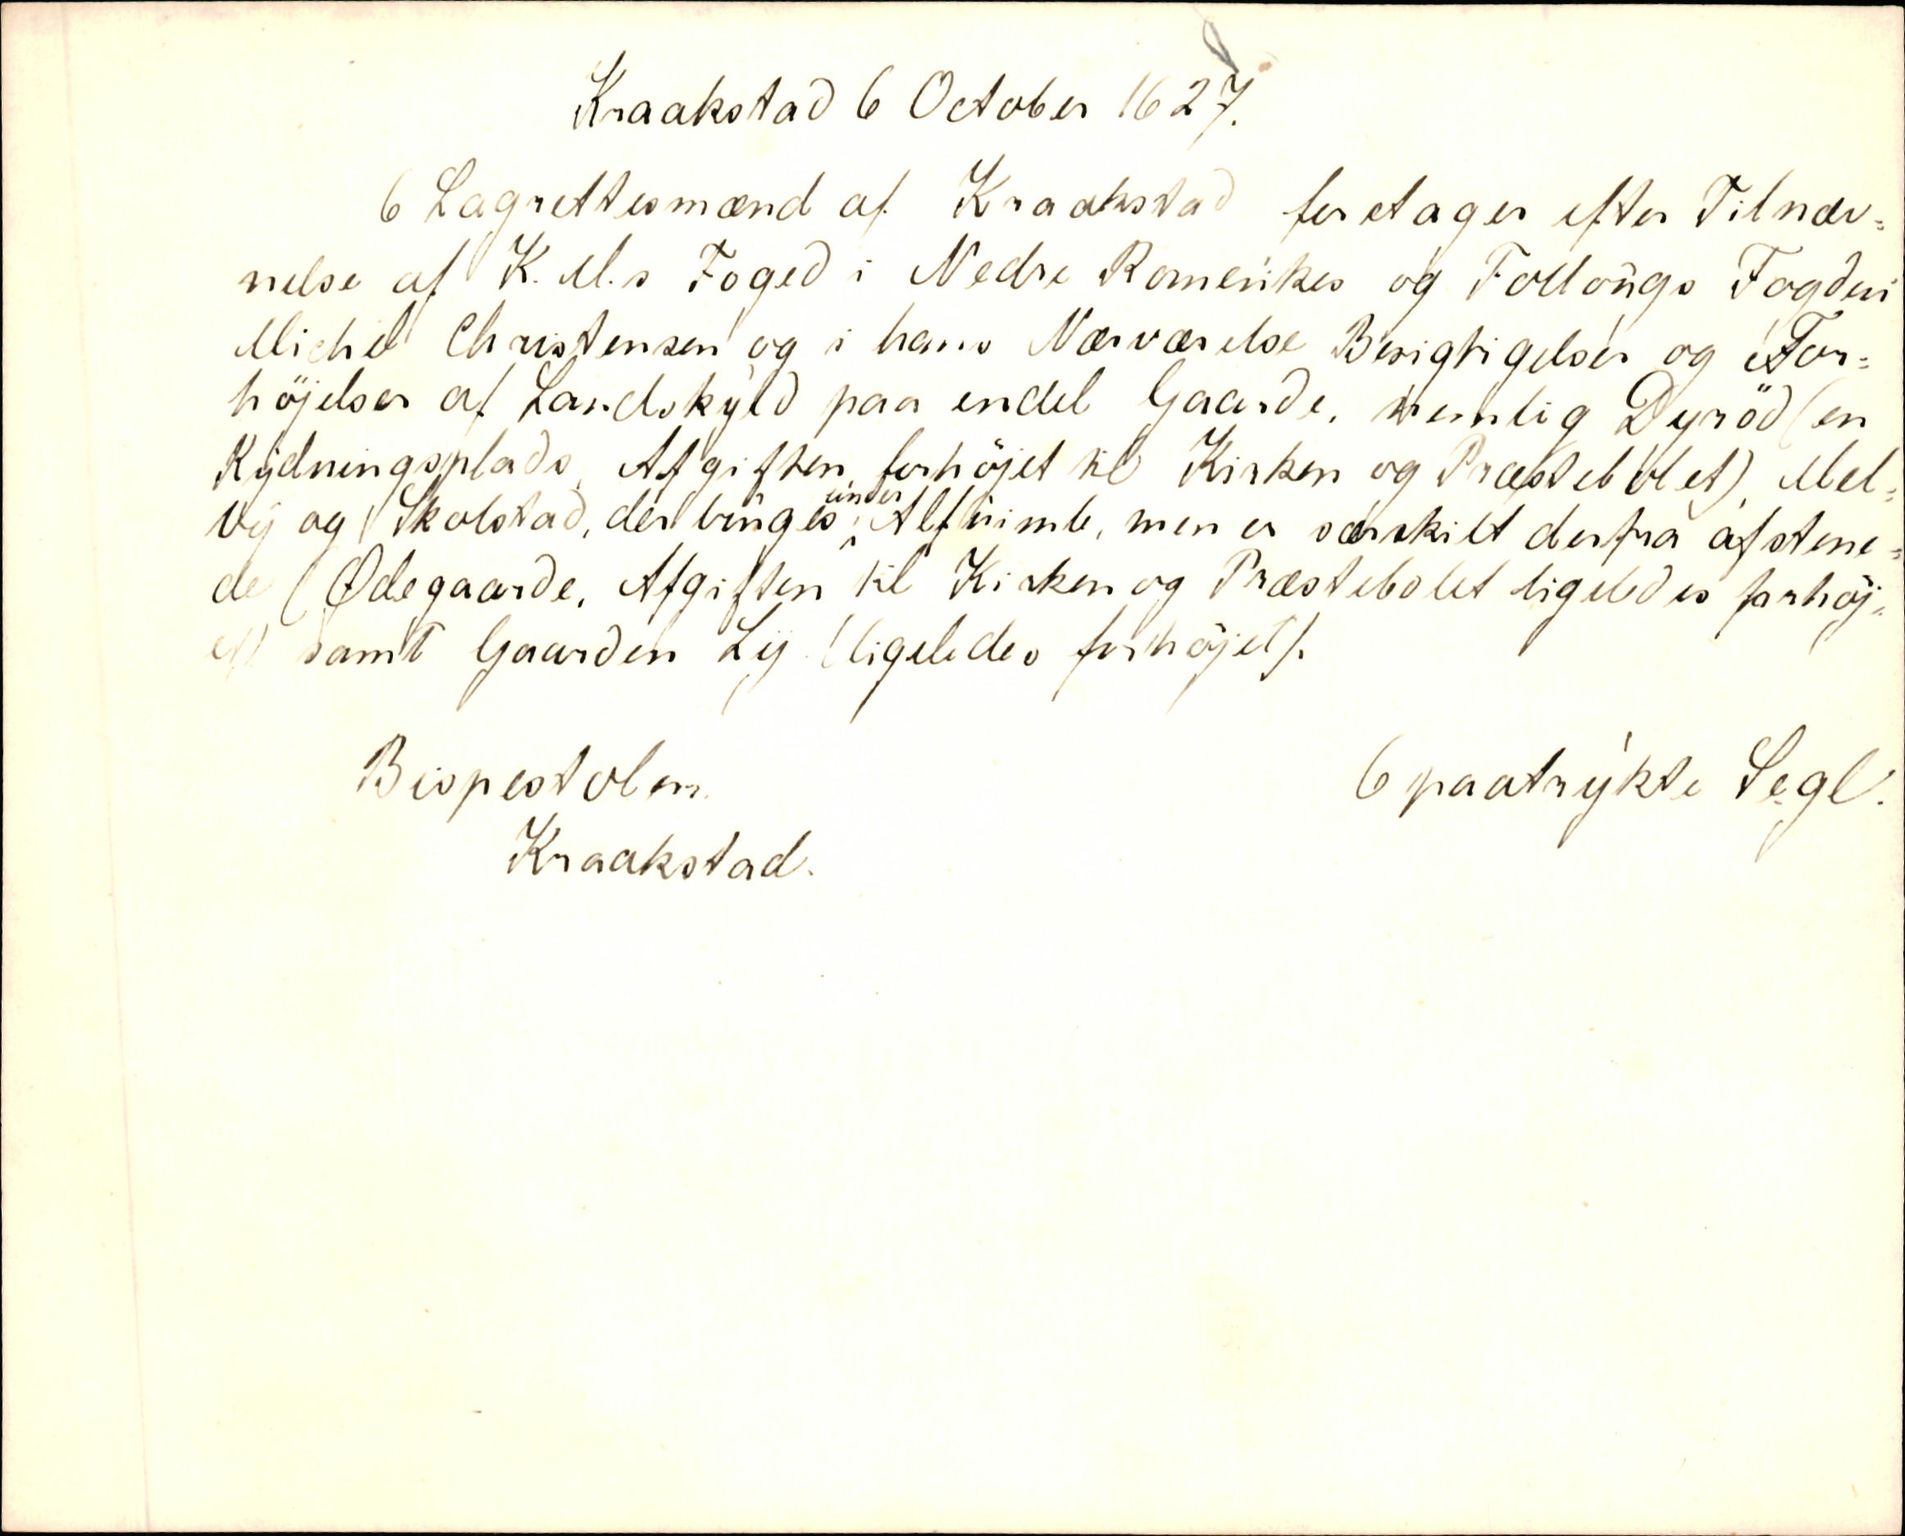 Kraakstad 6 October 1627.
6 Lagrettesmænd af Kraakstad foretager efter Tilnæv=
nelse af K. M.s Foged i Nedre Romerikes og Follougs Fogderi
Michel Christensen og i hans Nærværelse Besigtigelser og For=
höjelser af Landskyld paa endel Gaarde, nemlig Dyröd (en
Rydningsplads, Afgiften forhöjet til Kirken og Præstebolet), Mel=
by og Skolstad, der bruges under Alfuimb, men er særskilt derfra afstene=
de (Ødegaarde, Afgiften til Kirken og Præstebolet ligeledes forhöj=
et) samt Gaarden Ly (ligeledes forhöjet).
Bispestolen 6 paatrykte Segl.
Kraakstad.